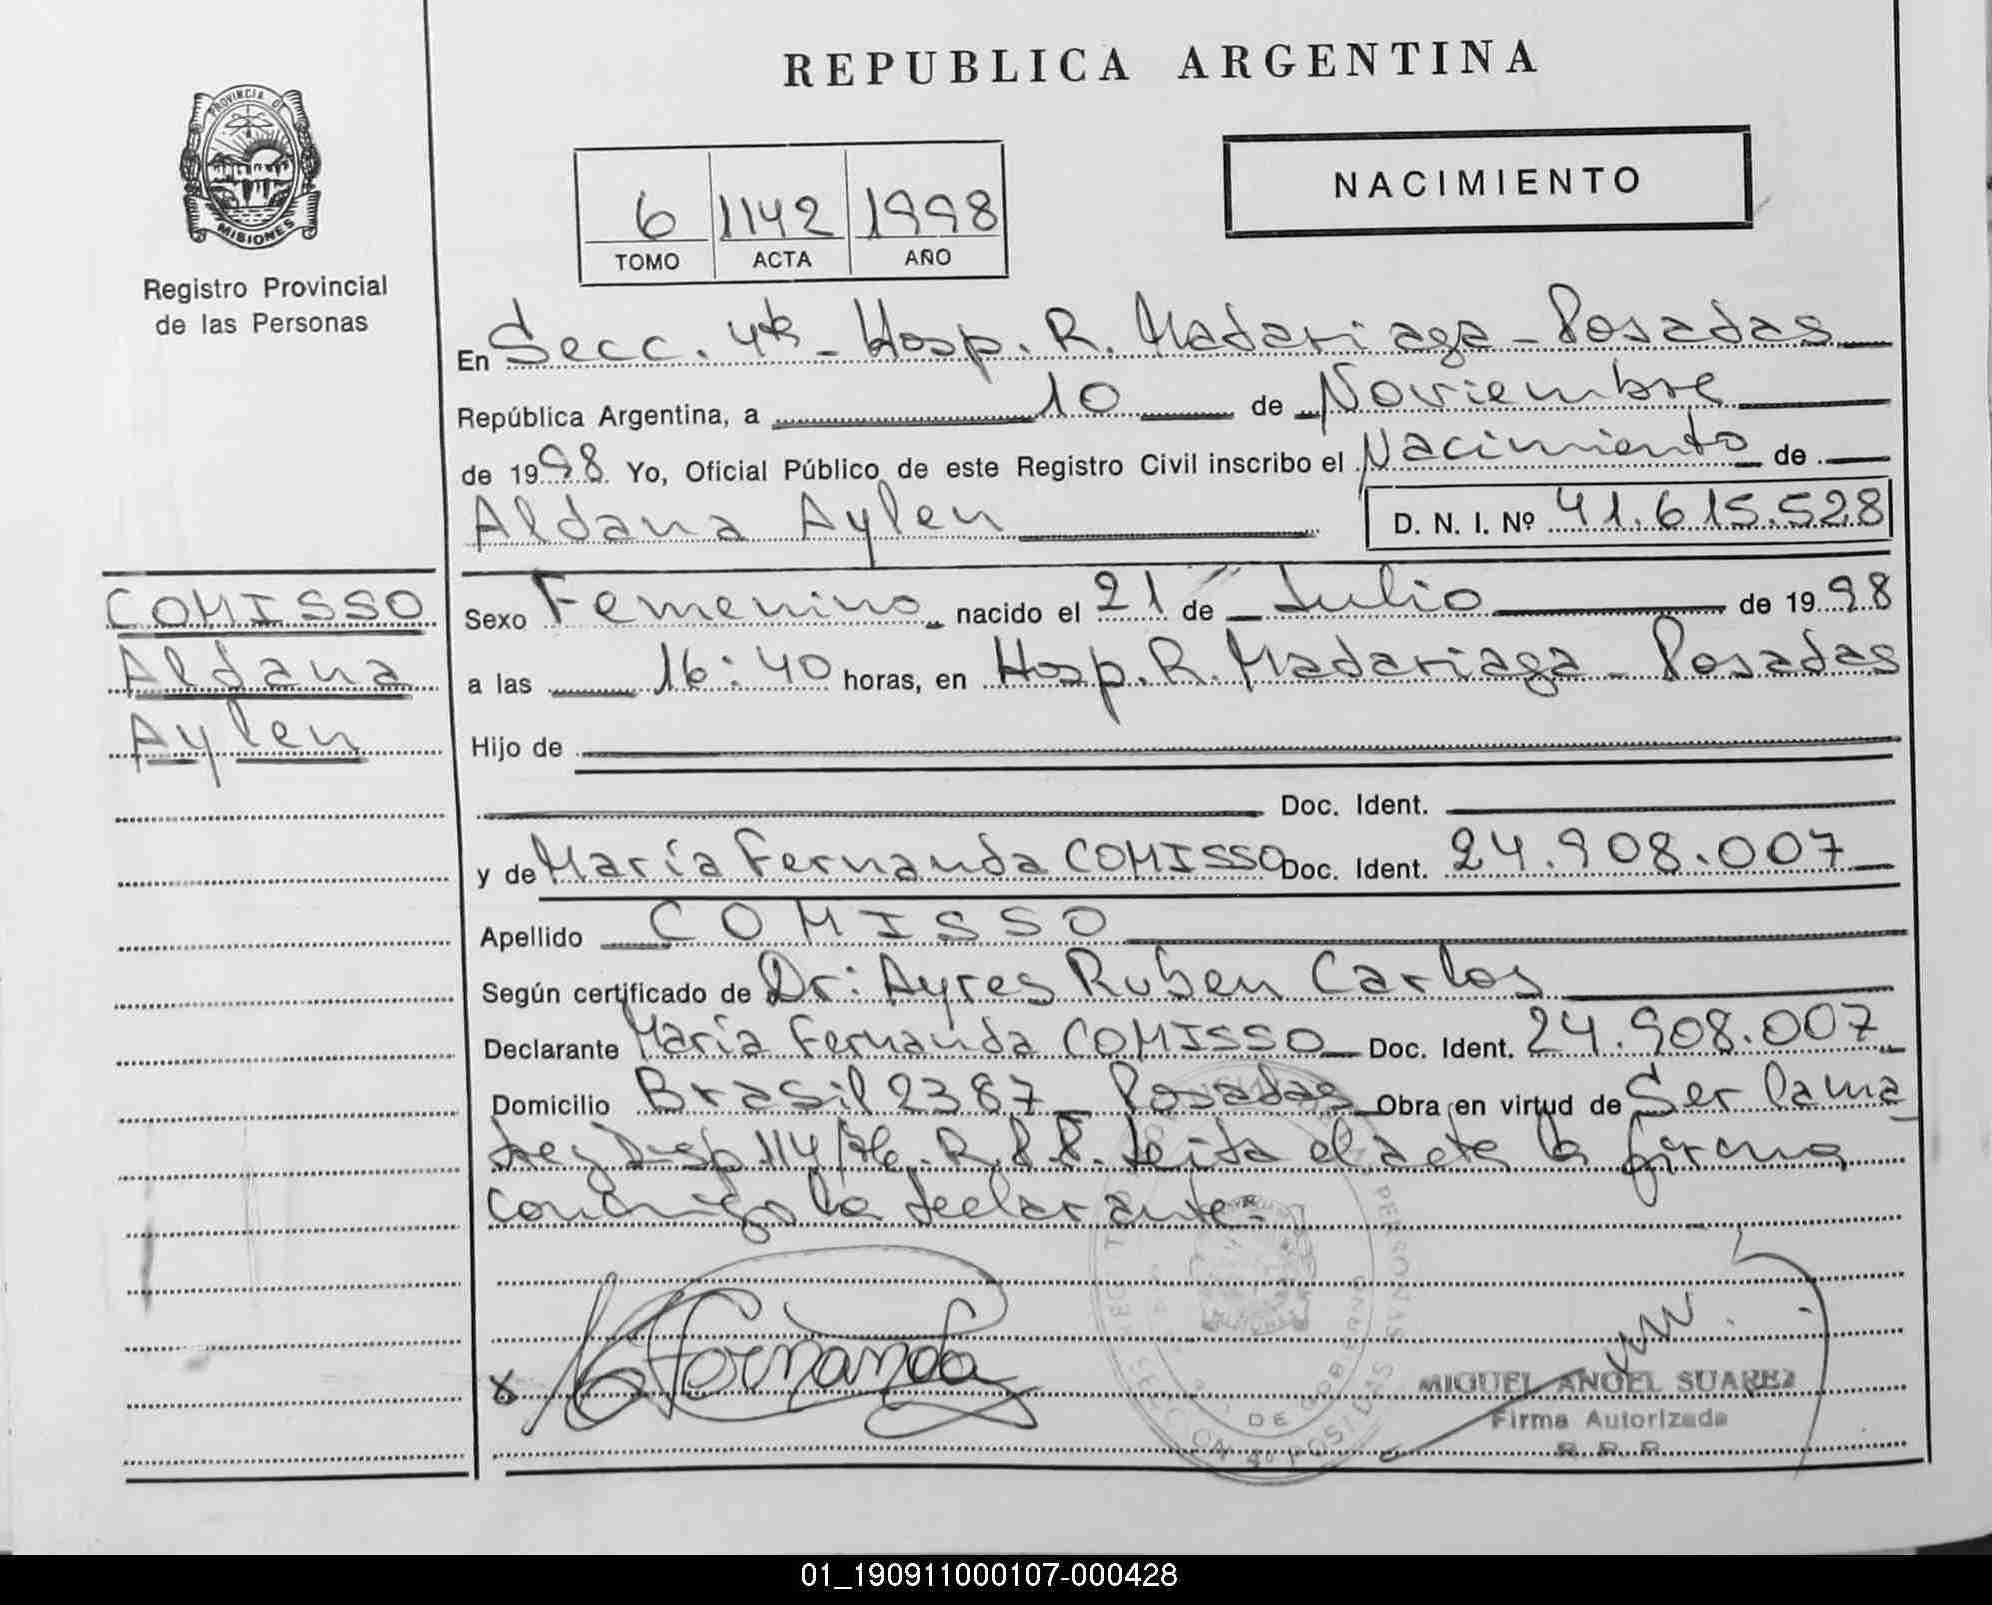 REPUBLICA ARGENTINA
PROVINCIA DE
MISIONES
Registro Provincial
de las Personas
6 1142 1998
TOMO ACTA AÑO
NACIMIENTO
En Secc. 4ta - Hosp. R. Madariaga - Posadas
República Argentina, a 10 de Noviembre
de 1998 Yo, Oficial Público de este Registro Civil inscribo el Nacimiento de
Aldana Aylen D. N. I. Nº 41.615.528
COMISSO
Aldana
Aylen
Sexo Femenino nacido el 21 de Julio de 1998
a las 16:40 horas, en Hosp. R. Madariaga - Posadas
Hijo de
Doc. Ident.
y de María Fernanda COMISSO Doc. Ident. 24.908.007
Apellido COMISSO
Según certificado de Dr: Ayres Ruben Carlos
Declarante María Fernanda COMISSO Doc. Ident. 24.908.007
Domicilio Brasil 2387 - Posadas Obra en virtud de Ser la ma
dre y Disp 114/76. R.P.P. Leida el acta la firma
conmigo la declarante.-
x Fernanda
MIGUEL ANGEL SUAREZ
Firma Autorizada
R.P.P.
01_190911000107-000428